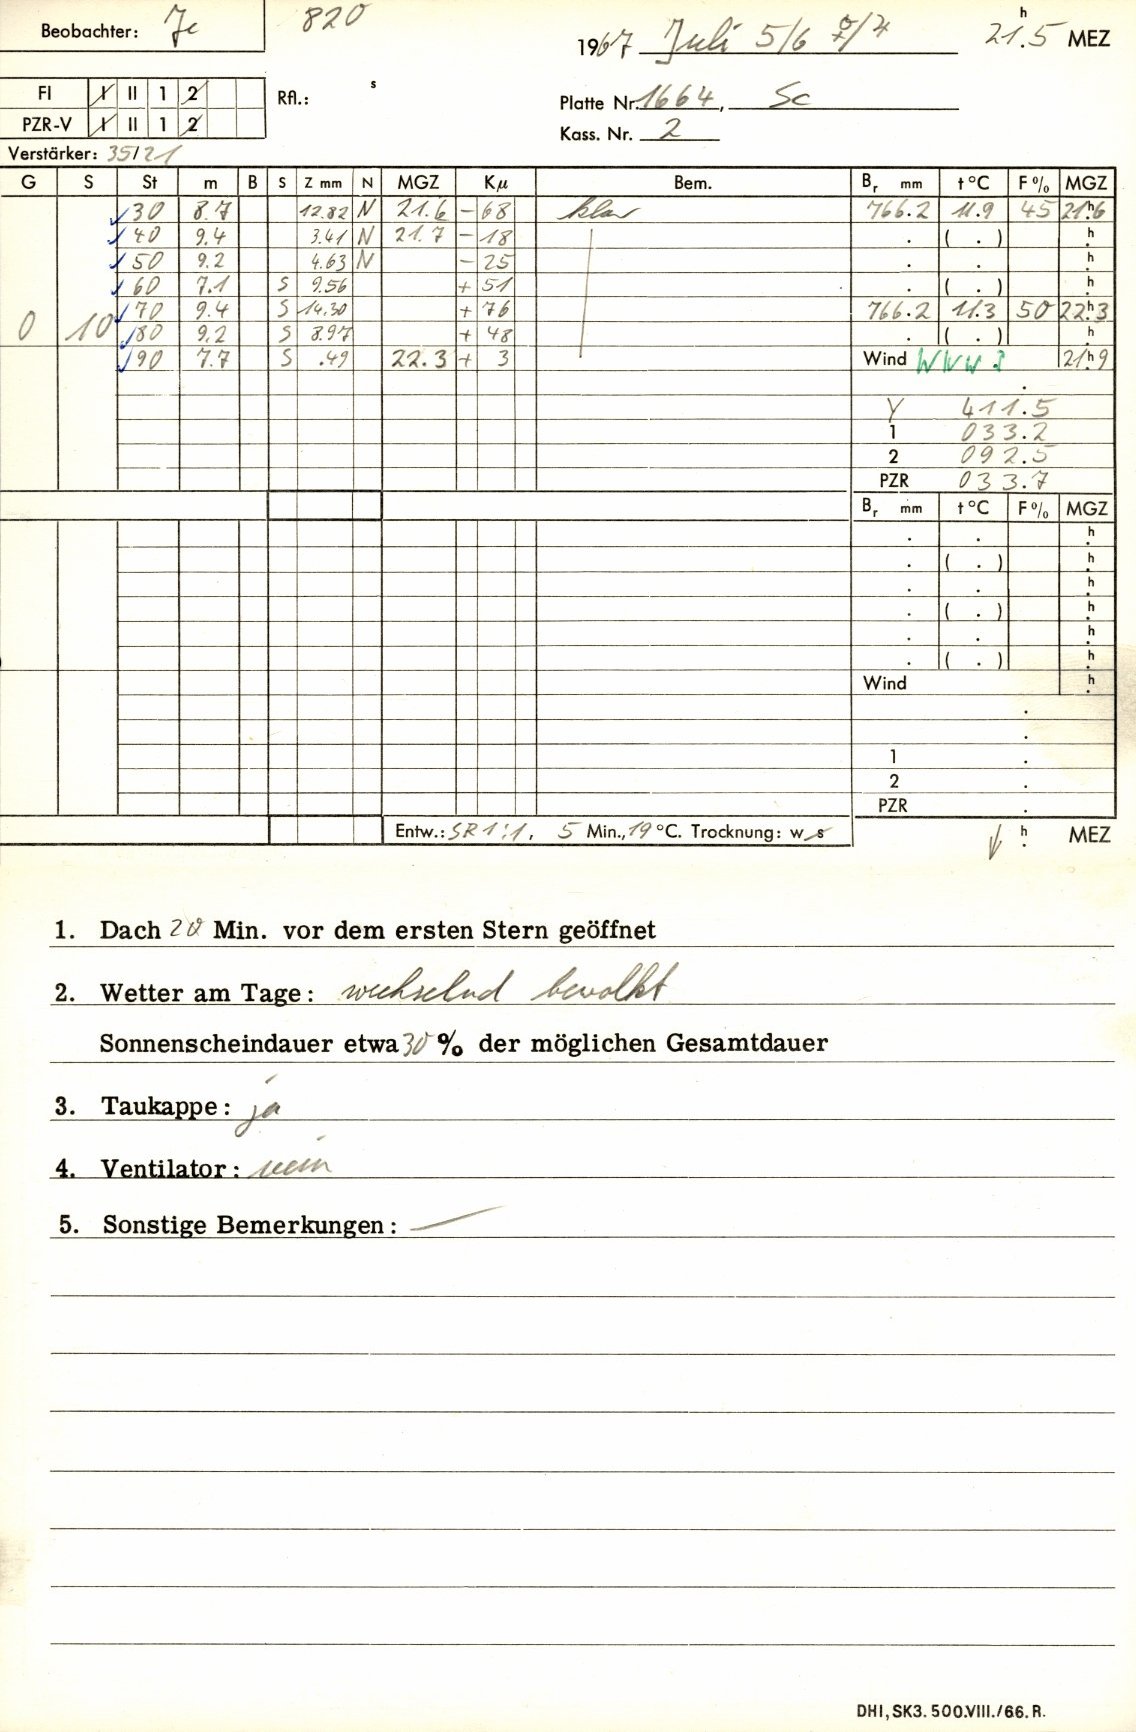 Beobachter: Je 820 1967 Juli 5/6 ☿/♃ 21.5 h MEZ
FI I II 1 2 Rfl.: s Platte Nr. 1664, Sc
PZR-V I II 1 2 Kass. Nr. 2
Verstärker: 35/21
G S St m B S Z mm N MGZ Kµ Bem. Br mm t °C F % MGZ
30 8.7 12.82 N 21.6 - 68 klar 766.2 11.9 45 21h6
40 9.4 3.41 N 21.7 - 18 . ( . ) h.
50 9.2 4.63 N - 25 . . h.
60 7.1 S 9.56 + 51 . ( . ) h.
0 10 70 9.4 S 14.30 + 76 766.2 11.3 50 22h3
80 9.2 S 8.97 + 48 . ( . ) h.
90 7.7 S .49 22.3 + 3 Wind WNW 21h9
.
Y 411.5
1 033.2
2 092.5
PZR 033.7
Br mm t °C F % MGZ
. . h.
. ( . ) h.
. . h.
. ( . ) h.
. . h.
. ( . ) h.
Wind h.
.
.
1 .
2 .
PZR .
Entw.: SR 1:1, 5 Min., 19 °C. Trocknung: w s h. MEZ
1. Dach 20 Min. vor dem ersten Stern geöffnet
2. Wetter am Tage: wechselnd bewolkt
Sonnenscheindauer etwa 30 % der möglichen Gesamtdauer
3. Taukappe: ja
4. Ventilator: nein
5. Sonstige Bemerkungen: —
DHI, SK3. 500.VIII./66. R.